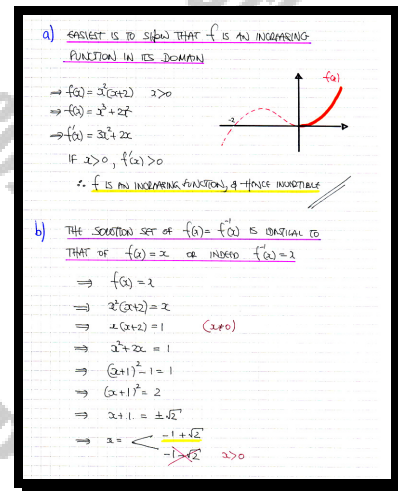 a) EASIEST IS TO SHOW THAT f IS AN INCREASING
FUNCTION IN ITS DOMAIN
⇒ f(x) = x²(x+2) x>0
⇒ f(x) = x³ + 2x²
⇒ f'(x) = 3x² + 2x
IF x>0, f'(x) >0
∴ f IS AN INCREASING FUNCTION, & HENCE INVERTIBLE
f(x)
-2
b) THE SOLUTION SET OF f(x) = f⁻¹(x) IS IDENTICAL TO
THAT OF f(x) = x OR INDEED f⁻¹(x) = x
⇒ f(x) = x
⇒ x²(x+2) = x
⇒ x(x+2) = 1 (x≠0)
⇒ x² + 2x = 1
⇒ (x+1)² - 1 = 1
⇒ (x+1)² = 2
⇒ x+1 = ±√2
⇒ x = < -1 + √2
-1 - √2 x>0